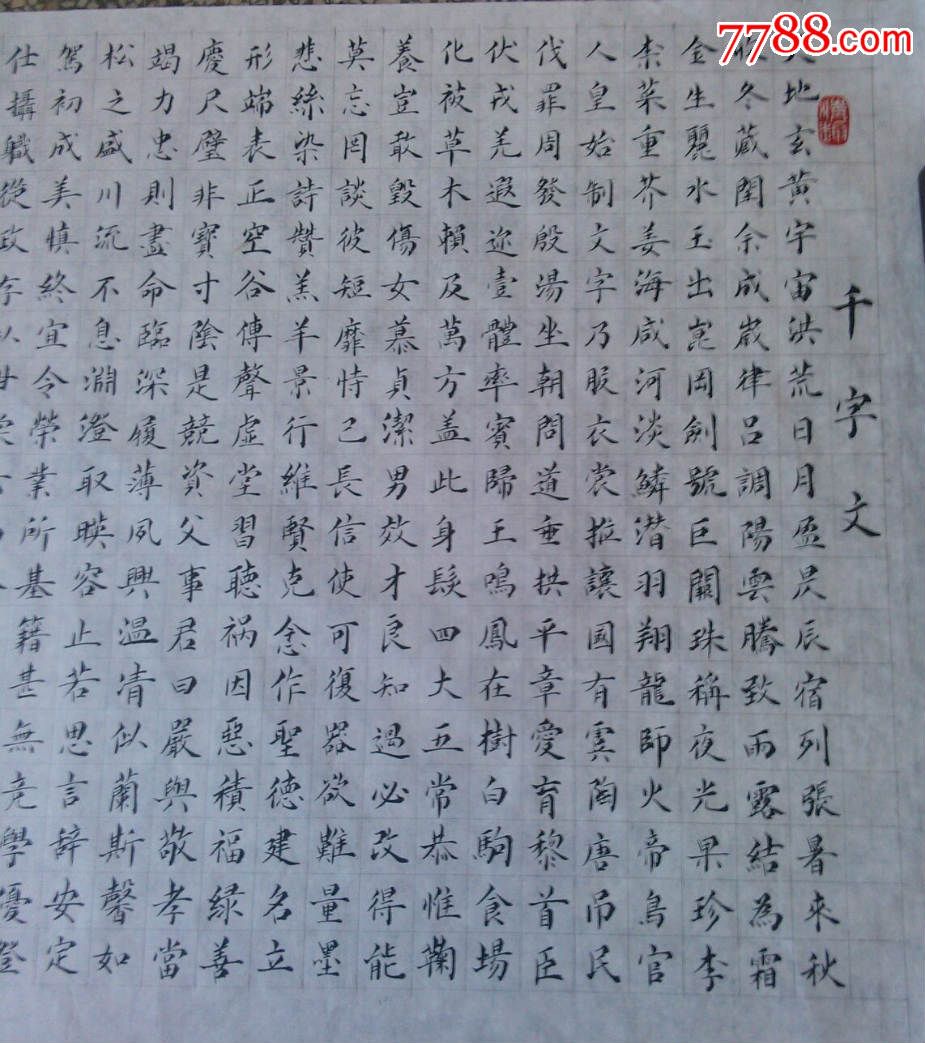 7788.com
千字文
地玄黃宇宙洪荒日月盈昃辰宿列張暑來秋
收冬藏閏余成歲律呂調陽雲騰致雨露結為霜
金生麗水玉出崑岡劍號巨闕珠稱夜光果珍李
柰菜重芥姜海咸河淡鱗潛羽翔龍師火帝鳥官
人皇始制文字乃服衣裳推讓國有虞陶唐吊民
伐罪周發殷湯坐朝問道垂拱平章愛育黎首臣
伏戎羌遐迩壹體率賓歸王鳴鳳在樹白駒食場
化被草木賴及萬方盖此身髮四大五常恭惟鞠
養豈敢毀傷女慕貞潔男效才良知過必改得能
莫忘罔談彼短靡恃己長信使可復器欲難量墨
悲絲染詩贊羔羊景行維賢克念作聖德建名立
形端表正空谷傳聲虛堂習聽祸因惡積福緣善
慶尺璧非寶寸陰是競資父事君曰嚴與敬孝當
竭力忠則盡命臨深履薄夙興溫清似蘭斯馨如
松之盛川流不息淵澄取暎容止若思言辭安定
駕初成美慎終宜令榮業所基籍甚無竟學優登
仕攝職從政存以甘棠